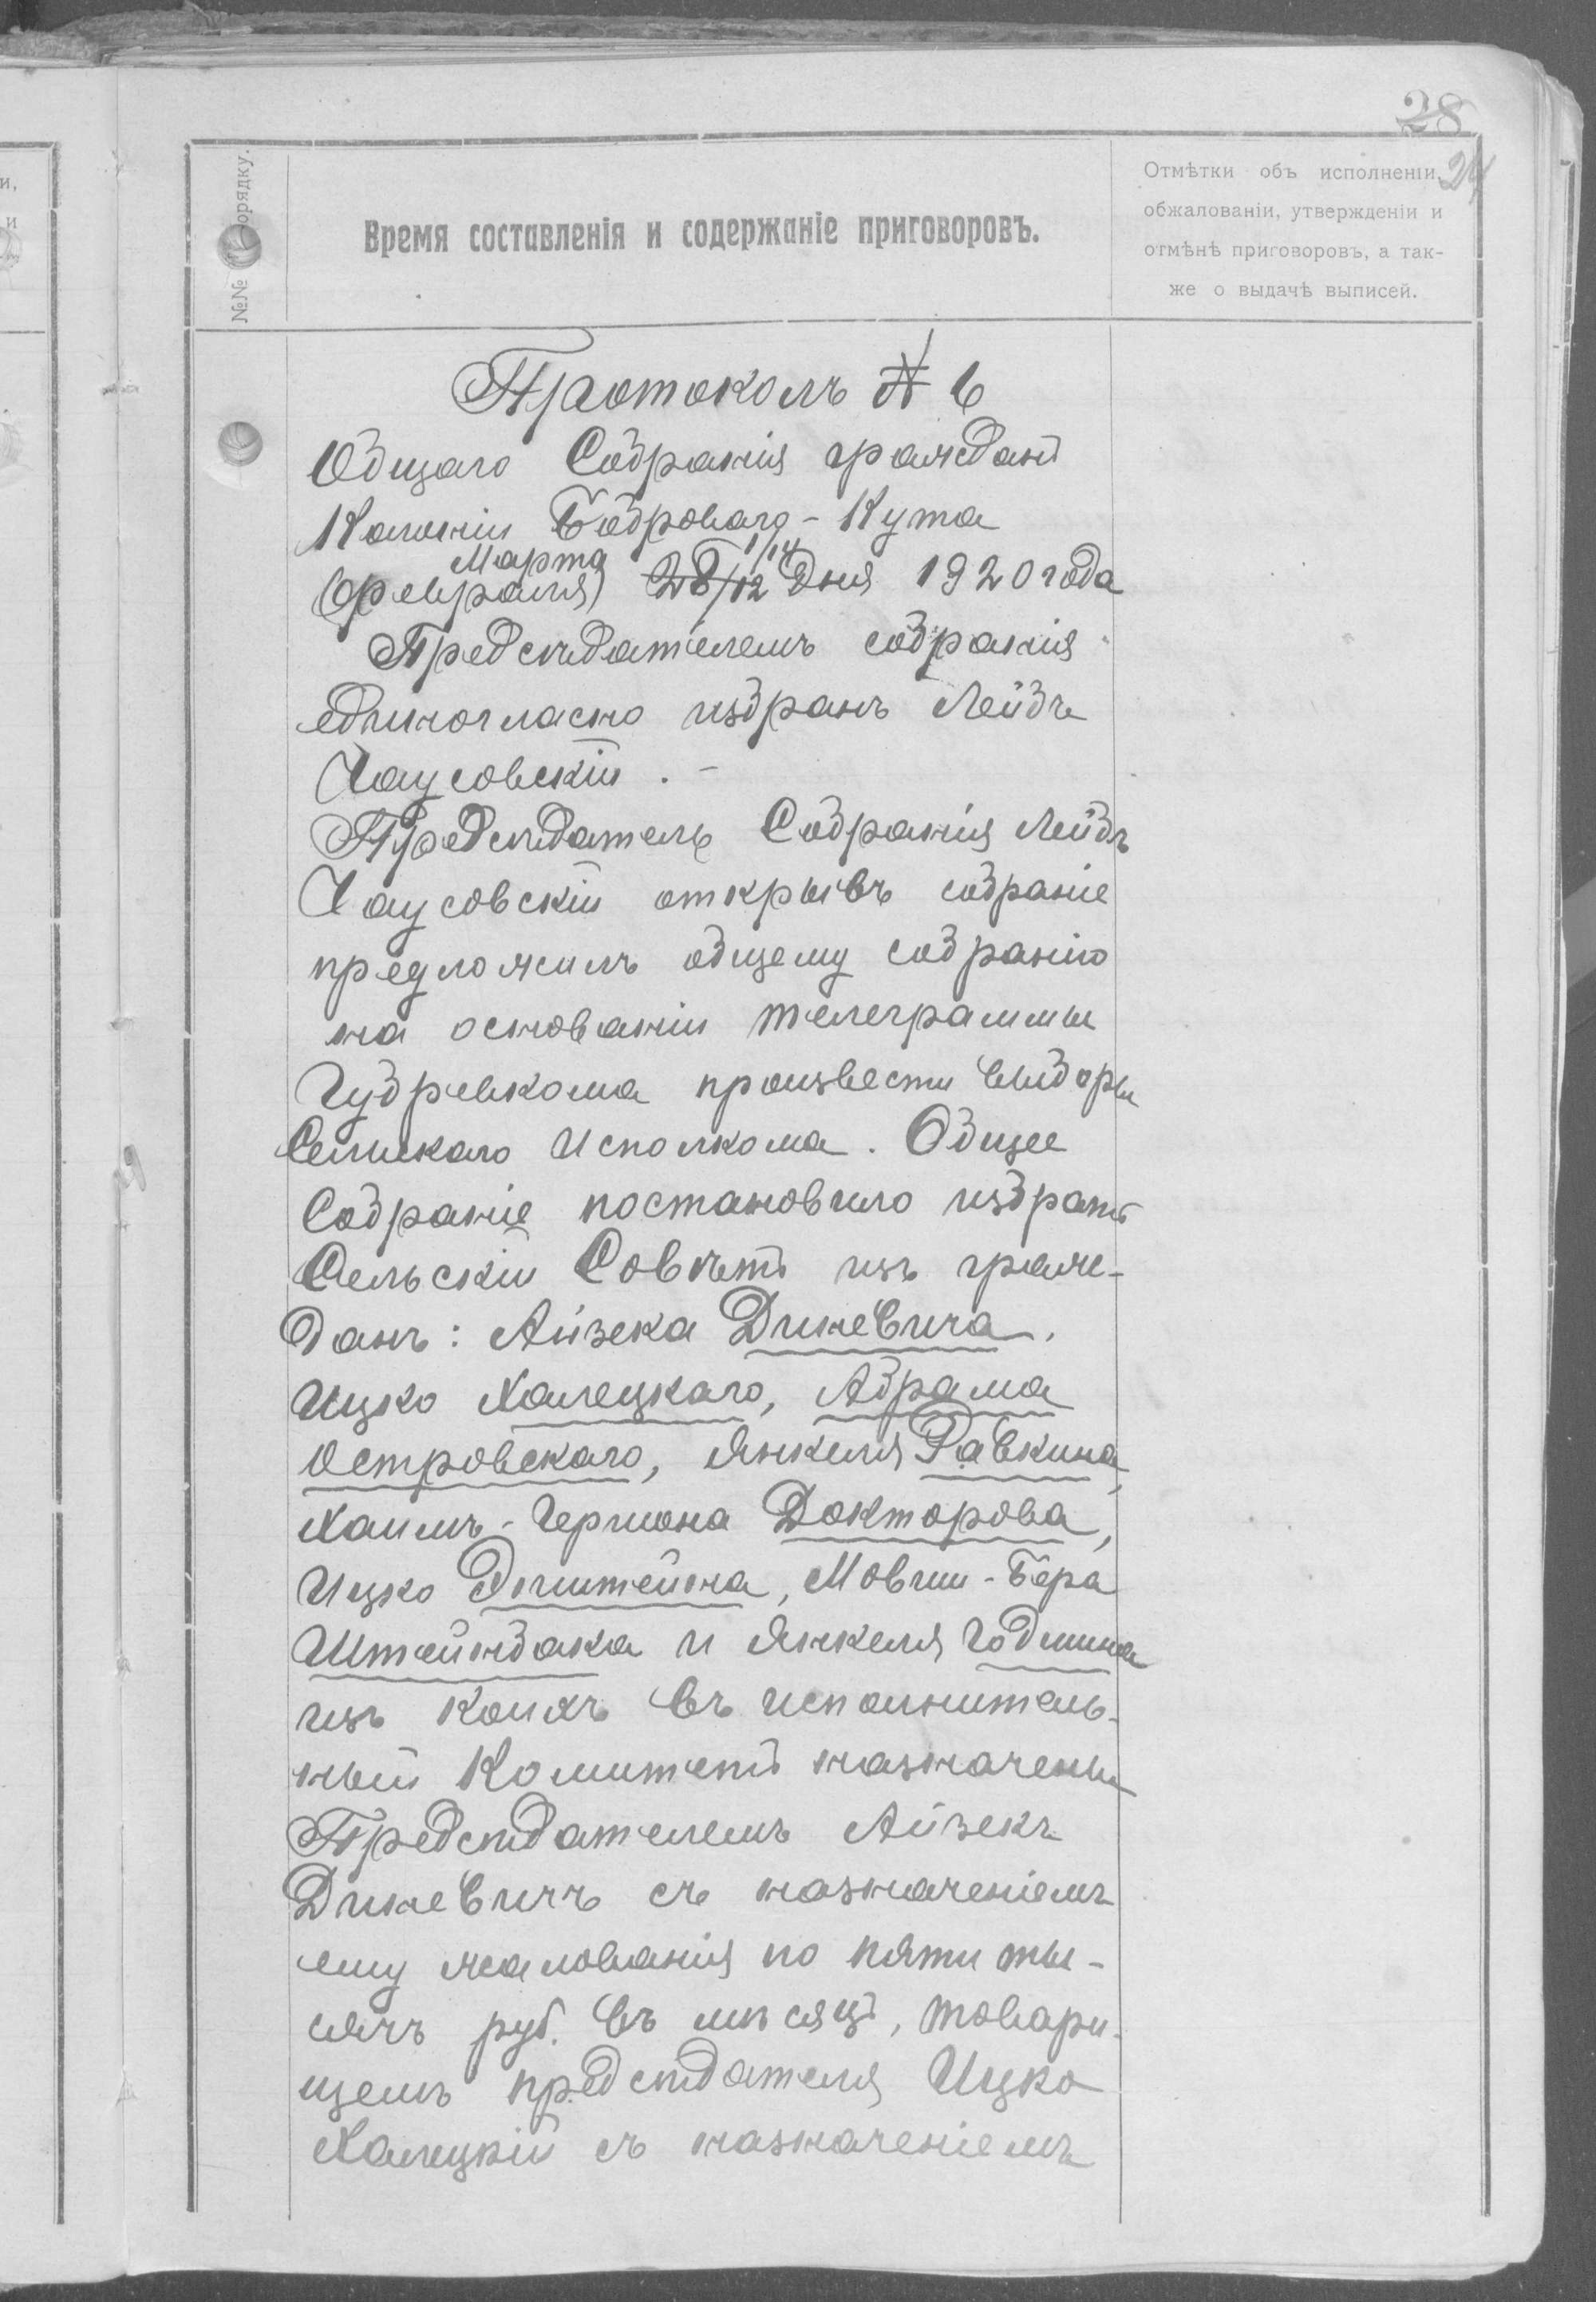 28
24
№№ порядку.
Время составленія и содержаніе приговоровъ.
Отмѣтки объ исполненіи,
обжалованіи, утвержденіи и
отмѣнѣ приговоровъ, а так-
же о выдачѣ выписей.
Протоколъ № 6
Общаго Собранія гражданъ
Колоніи Боброваго-Кута
Марта 1/14
(Февраля) 28/12 дня 1920 года
Предсѣдателемъ собранія
единогласно избранъ Лейбъ
Чаусовскій. -
Предсѣдатель Собранія Лейбъ
Чаусовскій открывъ собраніе
предложилъ общему собранію
на основаніи телеграммы
Губревкома произвести выборы
Сельскаго Исполкома. Общее
Собраніе постановило избрать
Сельскій Совѣтъ изъ граж-
данъ: Айзека Диневича,
Ицко Халецкаго, Абрама
Островскаго, Янкеля Равкина,
Хаимъ-Гершона Докторова,
Ицко Эпштейна, Мовши-Бера
Штейнбока и Янкеля Годмина
изъ коихъ въ исполнитель-
ный Комитетъ назначены
Предсѣдателемъ Айзекъ
Диневичъ съ назначеніемъ
ему жалованія по пяти ты-
сячъ руб. въ мѣсяцъ, товари-
щемъ предсѣдателя Ицко
Халецкій съ назначеніемъ